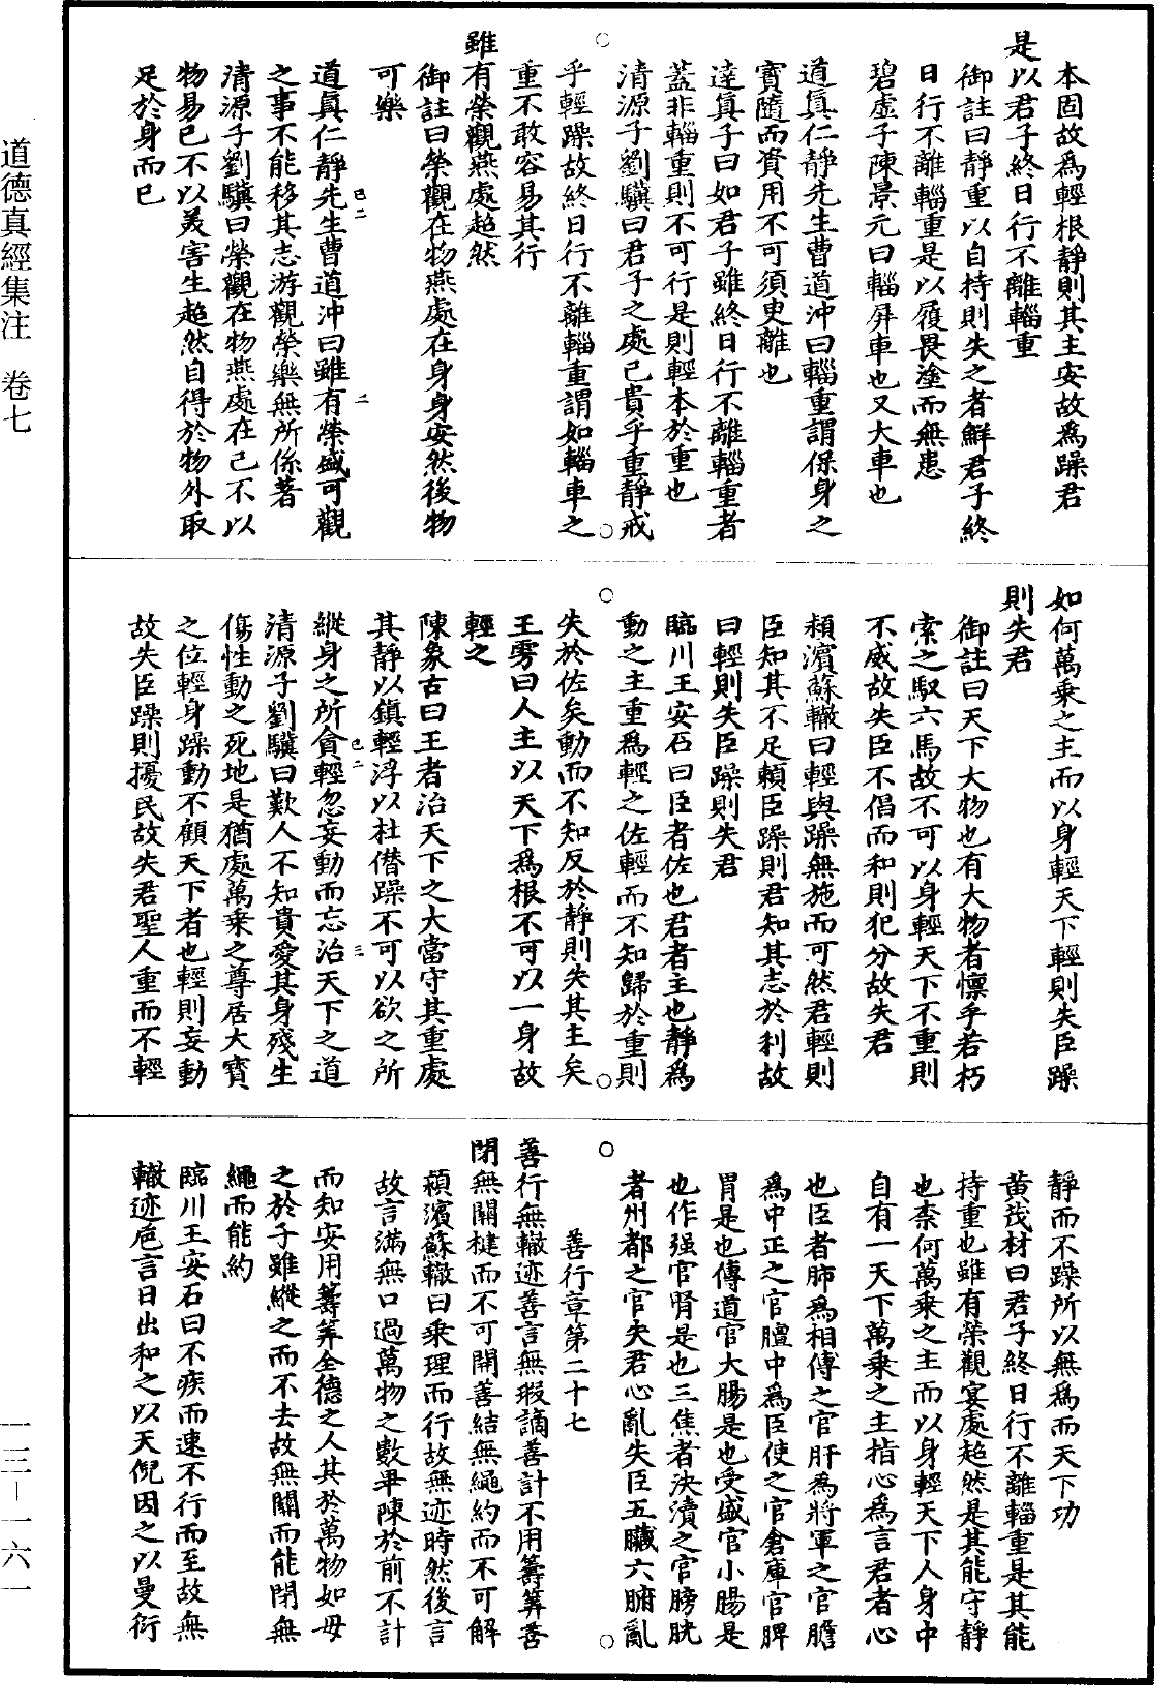 本固故爲輕根靜則其主安故爲躁君
是以君子終日行不離輜重
御註曰靜重以自持則失之者鮮君子終
日行不離輜重是以履畏塗而無患
碧虛子陳景元曰輜屏車也又大車也
道眞仁靜先生曹道沖曰輜重謂保身之
寶隨而資用不可須臾離也
達眞子曰如君子雖終日行不離輜重者
蓋非輜重則不可行是則輕本於重也
清源子劉驥曰君子之處己貴乎重靜戒
乎輕躁故終日行不離輜重謂如輜車之
重不敢容易其行
雖有榮觀燕處超然
御註曰榮觀在物燕處在身身安然後物
可樂
道眞仁靜先生曹道沖曰雖有榮盛可觀
之事不能移其志游觀榮樂無所係著
清源子劉驥曰榮觀在物燕處在己不以
物易己不以美害生超然自得於物外取
足於身而已
已二 二
如何萬乘之主而以身輕天下輕則失臣躁
則失君
御註曰天下大物也有大物者懍乎若朽
索之馭六馬故不可以身輕天下不重則
不威故失臣不倡而和則犯分故失君
頴濱蘇轍曰輕與躁無施而可然君輕則
臣知其不足賴臣躁則君知其志於利故
曰輕則失臣躁則失君
臨川王安石曰臣者佐也君者主也靜爲
動之主重爲輕之佐輕而不知歸於重則
失於佐矣動而不知反於靜則失其主矣
王雱曰人主以天下爲根不可以一身故
輕之
陳象古曰王者治天下之大當守其重處
其靜以鎭輕浮以杜僭躁不可以欲之所
縱身之所貪輕忽妄動而忘治天下之道
清源子劉驥曰歎人不知貴愛其身殘生
傷性動之死地是猶處萬乘之尊居大寶
之位輕身躁動不顧天下者也輕則妄動
故失臣躁則擾民故失君聖人重而不輕
已二 三
靜而不躁所以無爲而天下功
黃茂材曰君子終日行不離輜重是其能
持重也雖有榮觀宴處超然是其能守靜
也柰何萬乘之主而以身輕天下人身中
自有一天下萬乘之主指心爲言君者心
也臣者肺爲相傅之官肝爲將軍之官膽
爲中正之官膻中爲臣使之官倉庫官脾
胃是也傳道官大腸是也受盛官小腸是
也作强官腎是也三焦者決瀆之官膀胱
者州都之官失君心亂失臣五臟六腑亂
善行章第二十七
善行無轍迹善言無瑕讁善計不用籌筭善
閉無關楗而不可開善結無繩約而不可解
頴濱蘇轍曰乘理而行故無迹時然後言
故言滿無口過萬物之數畢陳於前不計
而知安用籌筭全德之人其於萬物如母
之於子雖縱之而不去故無關而能閉無
繩而能約
臨川王安石曰不疾而速不行而至故無
轍迹巵言日出和之以天倪因之以曼衍
道德真經集注 卷七
一三－一六一